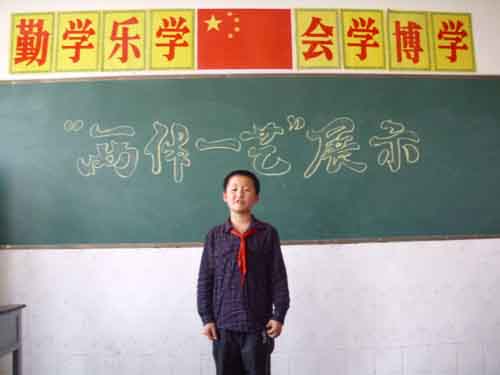 勤学乐学 会学博学
“两伴一艺”展示